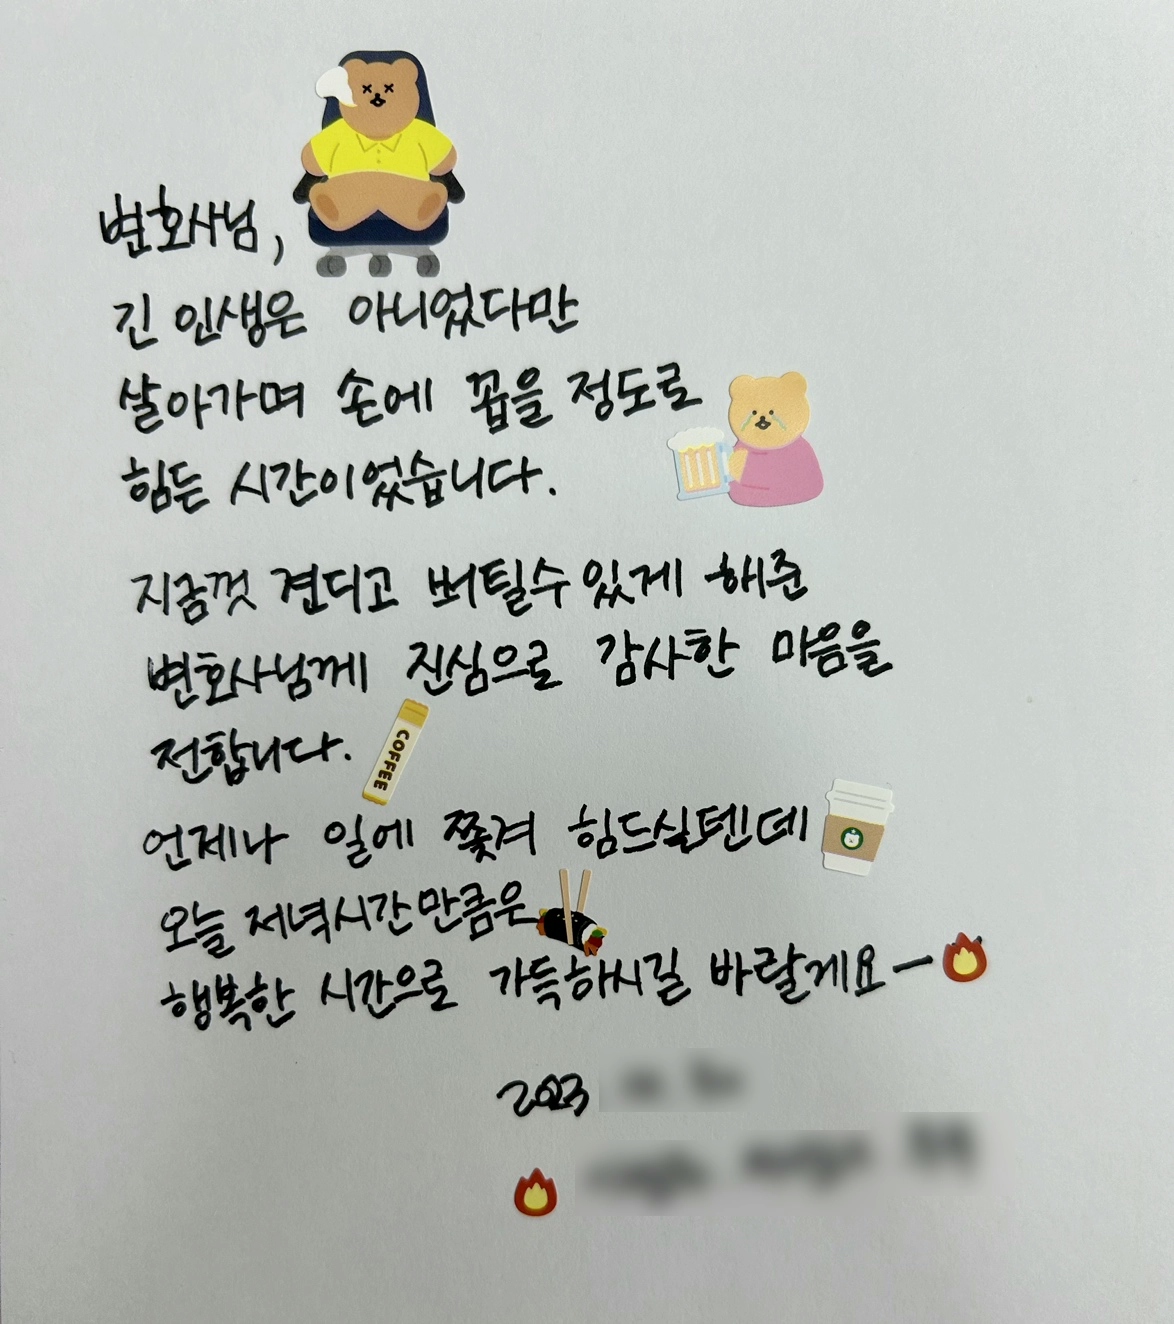 변호사님,
긴 인생은 아니었다만
살아가며 손에 꼽을 정도로
힘든 시간이었습니다.
지금껏 견디고 버틸수있게 해준
변호사님께 진심으로 감사한 마음을
전합니다.
COFFEE
언제나 일에 쫓겨 힘드실텐데
오늘 저녁시간만큼은
행복한 시간으로 가득하시길 바랄게요ー
2023